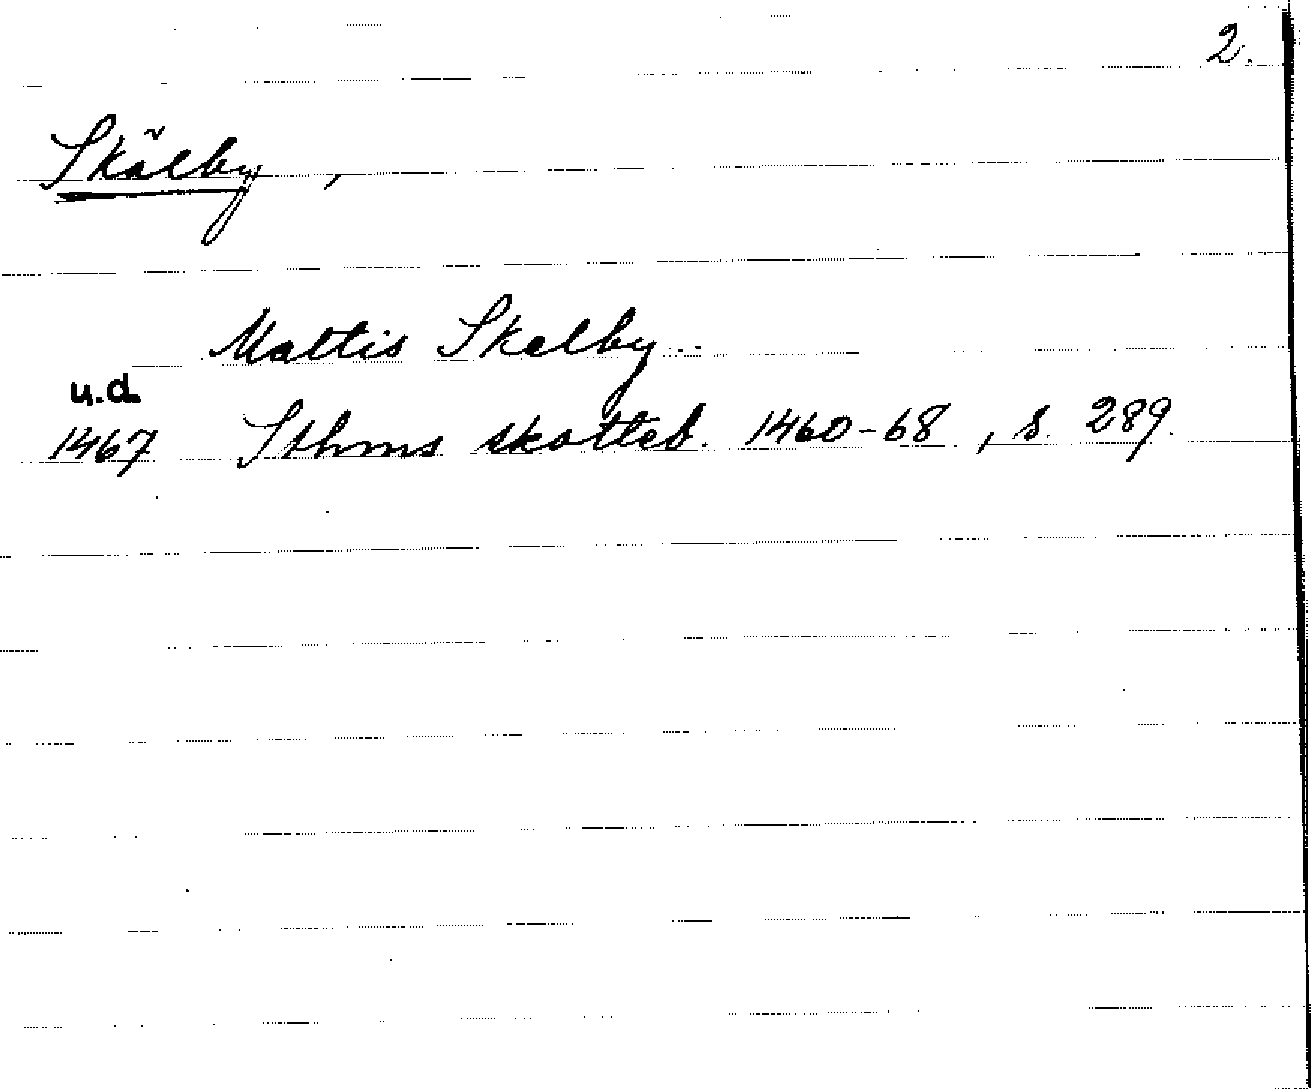 2.
Skälby ,
Mattis Skelby
u.d.
1467 Sthms skotteb. 1460-68, s. 289.